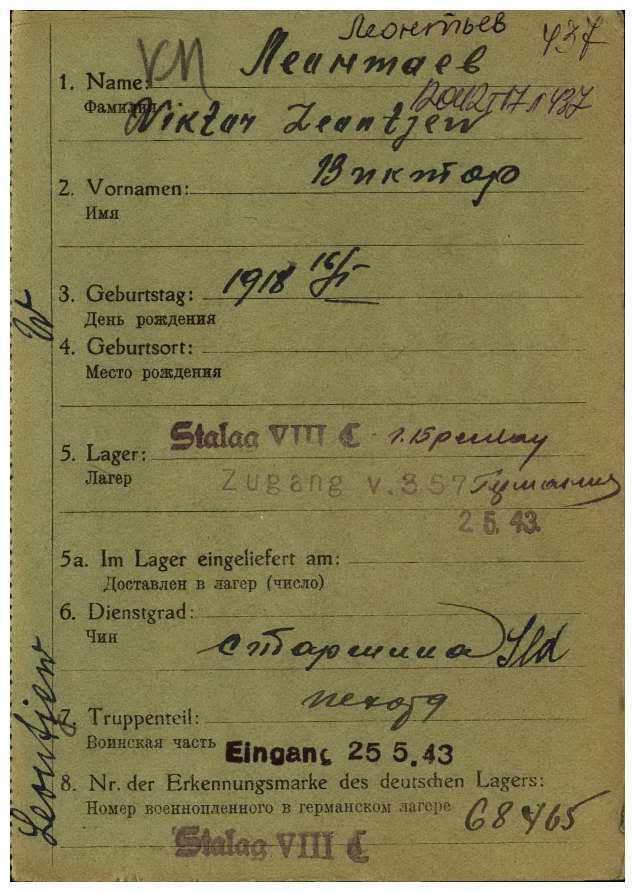 Леонтьев 437
1. Name: Леантаев
Фамилия
Viktar Leantjew
2. Vornamen: Виктар
Имя
3. Geburtstag: 1918 16/II
День рождения
4. Geburtsort:
Место рождения
Stalag VIII C г. Бреслау
5. Lager:
Лагер
Zugang v. 357
2 5. 43.
5a. Im Lager eingeliefert am:
Доставлен в лагер (число)
6. Dienstgrad:
Чин
старшина Sld
пехота
7. Truppenteil:
Воинская часть
Eingang 25 5. 43
8. Nr. der Erkennungsmarke des deutschen Lagers:
Номер военнопленного в германском лагере 68465
Stalag VIII C
Leontjew W